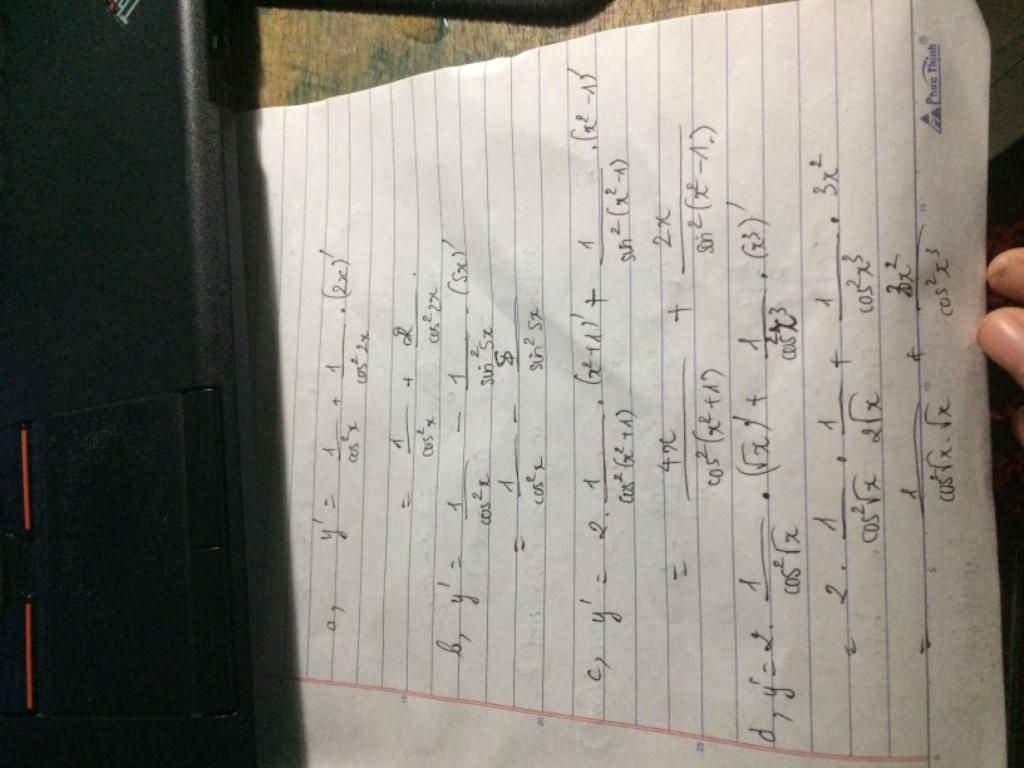 a, y' = 1/cos²x + 1/cos²2x . (2x)'
= 1/cos²x + 2/cos²2x .
b, y' = 1/cos²x - 1/sin²5x . (5x)'
= 1/cos²x - 5/sin²5x
c, y' = 2. 1/cos²(x²+1) . (x²+1)' + 1/sin²(x²-1) . (x²-1)'
= 4x/cos²(x²+1) + 2x/sin²(x²-1)
d, y' = 2. 1/cos²√x . (√x)' + 1/cos²x³ . (x³)'
= 2. 1/cos²√x . 1/2√x + 1/cos²x³ . 3x²
= 1/cos²√x.√x + 3x²/cos²x³
Phuc Thinh®